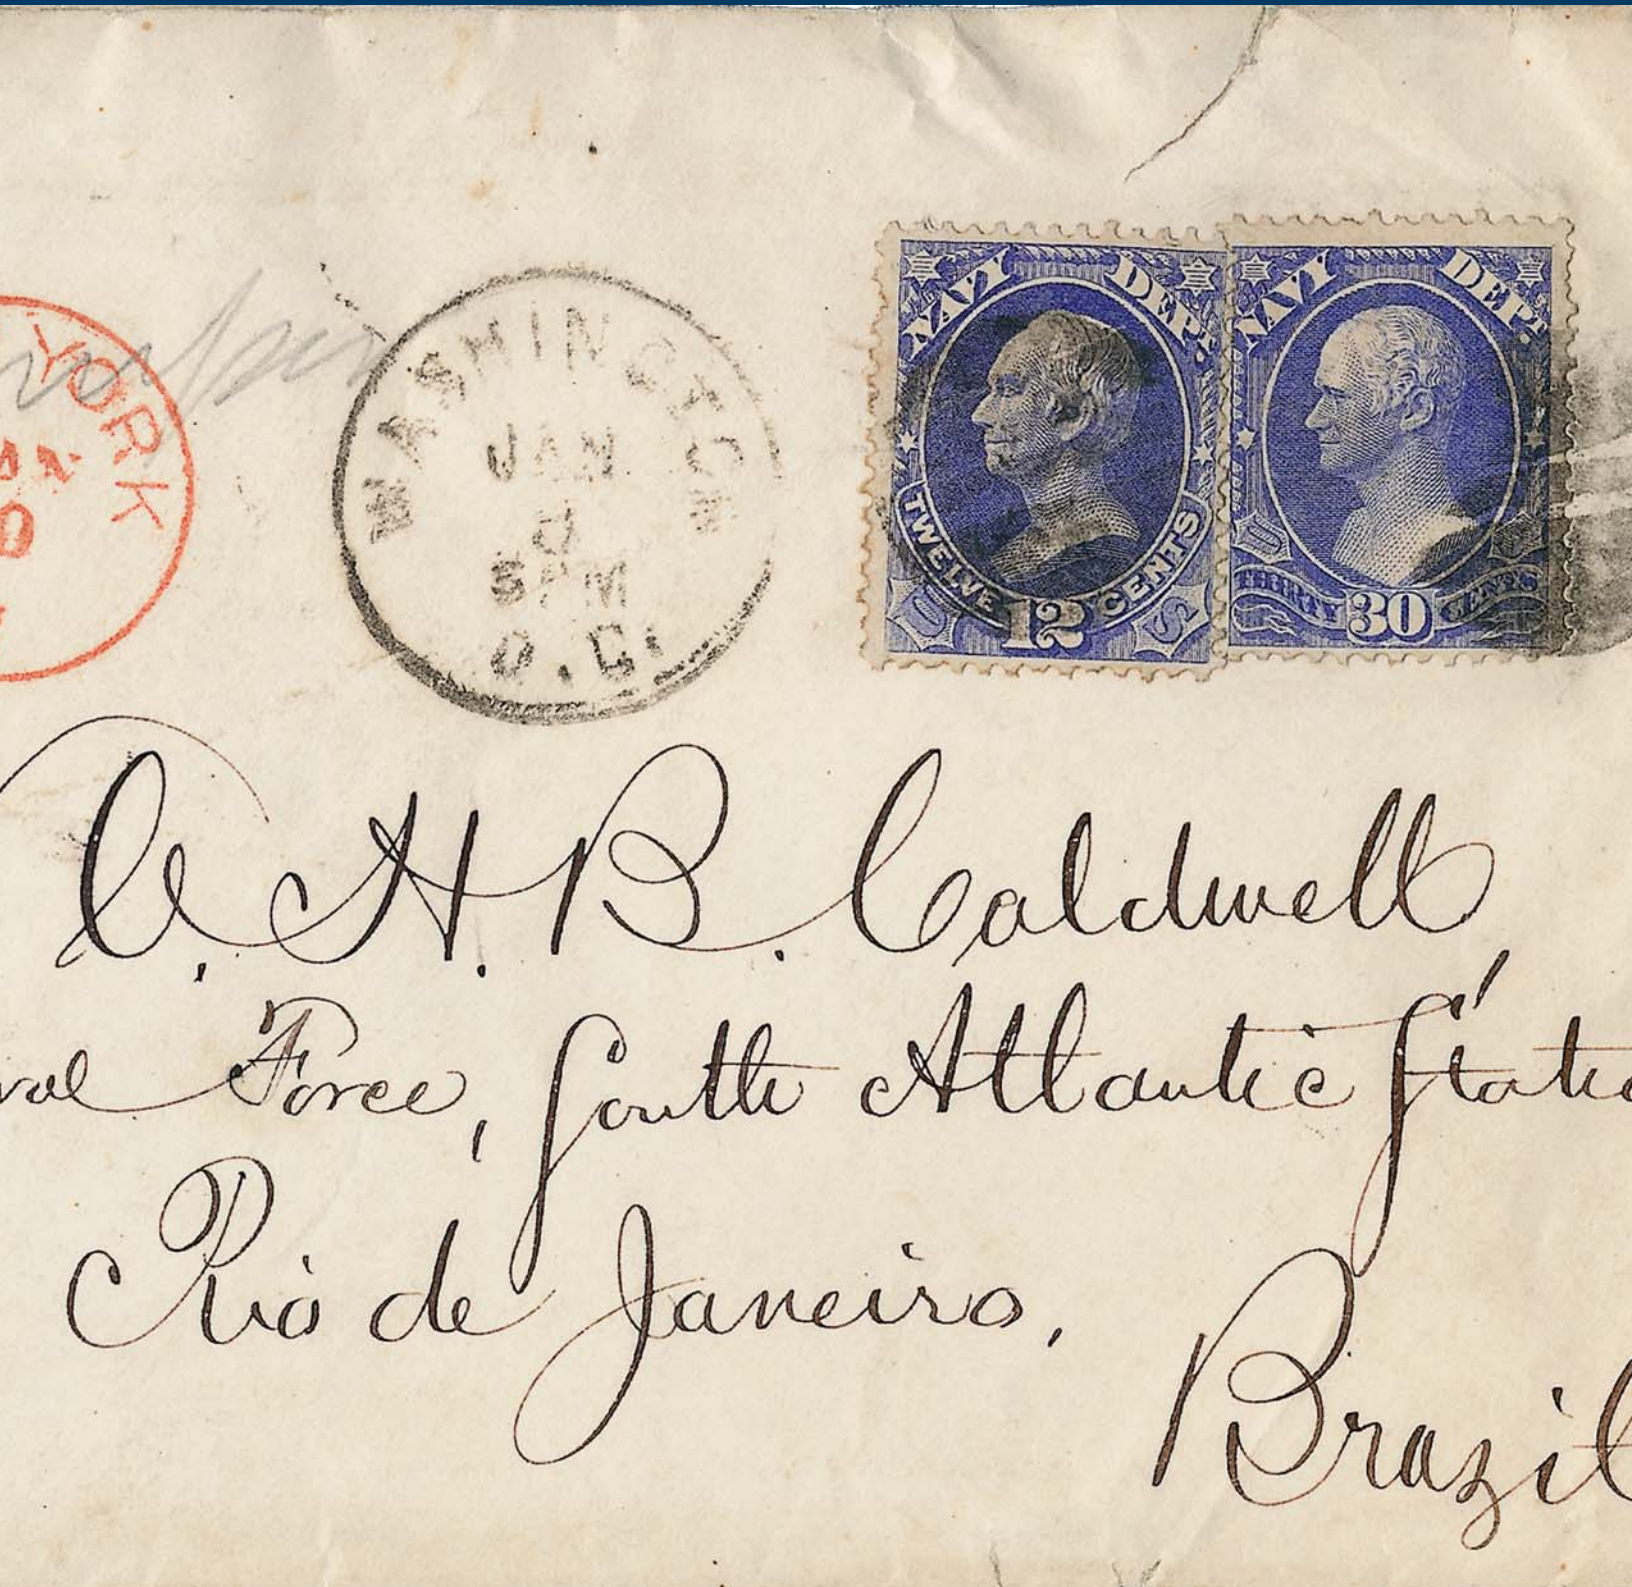 YORK
WASHINGTON
JAN
5 PM
D.C.
NAVY DEPT.
TWELVE 12 CENTS
U S
NAVY DEPT.
THIRTY 30 CENTS
U S
C. H. B. Caldwell,
Force, South Atlantic
Rio de Janeiro,
Brazil